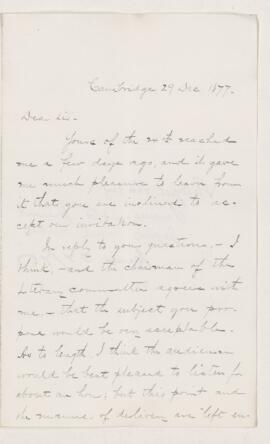 Cambridge 29 Dec 1877.
Dear Sir.
Yours of the 24th reached
me a few days ago, and it gave
me much pleasure to learn from
it that you are inclined to ac-
cept our invitation.
In reply to your questions, - I
think, - and the chairman of the
Literary committee agrees with
me, - that the subject you pro-
pose would be very acceptable.
As to length I think the audience
would be best pleased to listen for
about an hour; but this point and
the manner of delivery are left en-